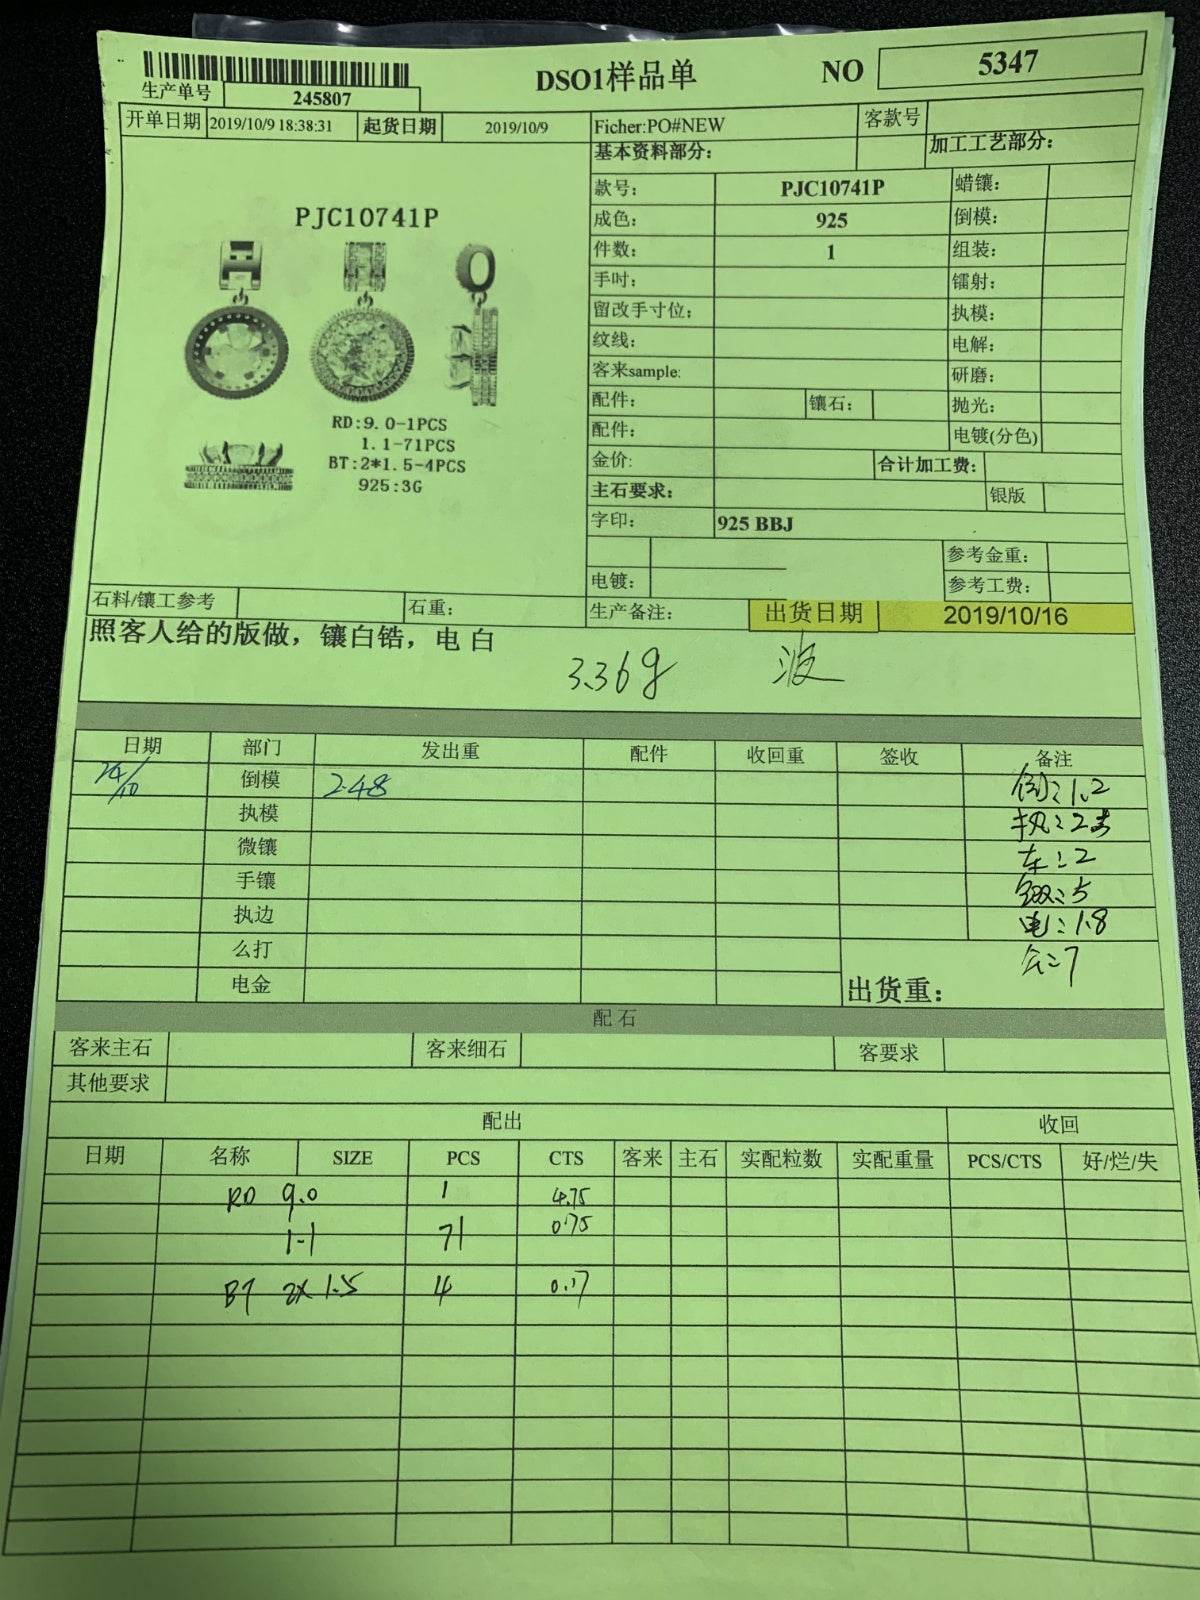 DSO1样品单
NO 5347
生产单号 245807
开单日期 2019/10/9 18:38:31 起货日期 2019/10/9 Ficher:PO#NEW 客款号
基本资料部分: 加工工艺部分:
PJC10741P
RD:9.0-1PCS
1.1-71PCS
BT:2*1.5-4PCS
925:3G
款号: PJC10741P 蜡镶:
成色: 925 倒模:
件数: 1 组装:
手吋: 镭射:
留改手寸位: 执模:
纹线: 电解:
客来sample: 研磨:
配件: 镶石: 抛光:
配件: 电镀(分色)
金价: 合计加工费:
主石要求: 银版
字印: 925 BBJ
参考金重:
电镀: 参考工费:
石料/镶工参考 石重: 生产备注: 出货日期 2019/10/16
照客人给的版做，镶白锆，电白
3.36g 波
日期 部门 发出重 配件 收回重 签收 备注
24/10 倒模 2.48 倒:1.2
执模 执:
微镶 车:2
手镶 :5
执边 电:1.8
么打 :7
电金 出货重:
配石
客来主石 客来细石 客要求
其他要求
配出 收回
日期 名称 SIZE PCS CTS 客来 主石 实配粒数 实配重量 PCS/CTS 好/烂/失
RD 9.0 1 4.75
1-1 71 0.75
BT 2X 1.5 4 0.17